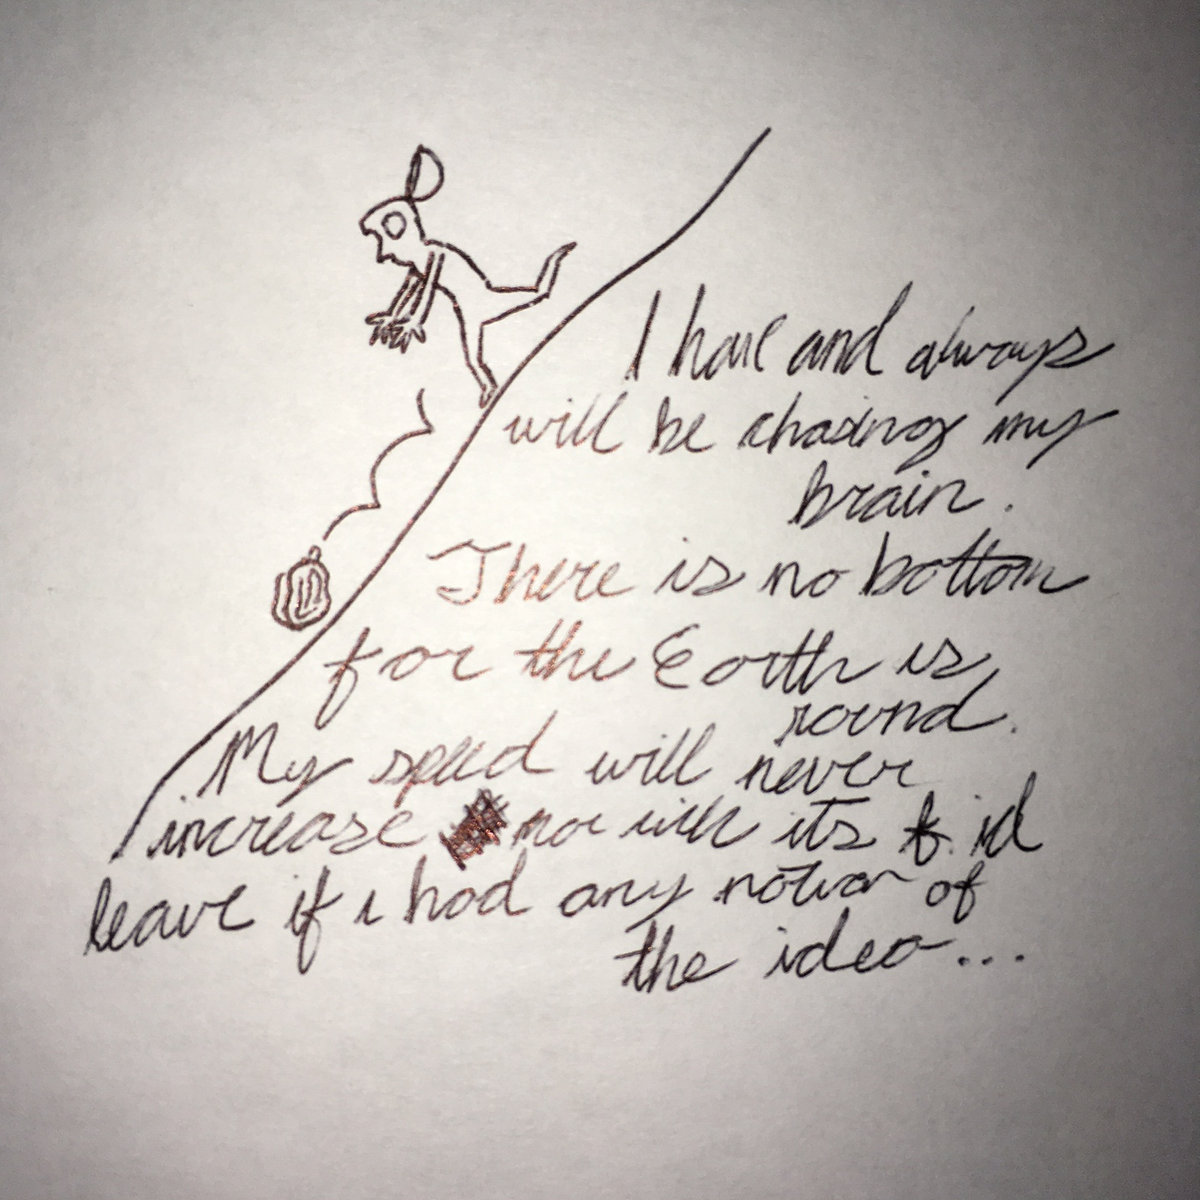 I have and always
will be chasing my
brain.
There is no bottom
for the Earth is
round.
My speed will never
increase nor will its
id
leave if i had any notion of
the idea...